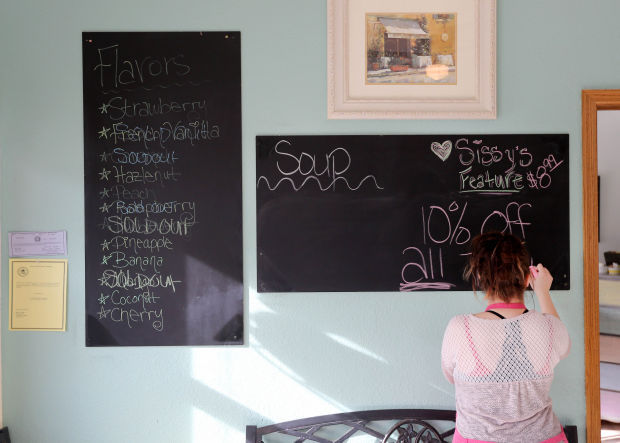 Flavors
Strawberry
French Vanilla
Soldout
Hazlenut
Peach
SOLDOUT
Pineapple
Banana
SOLDOUT
Coconut
Cherry
Soup
Sissy's
Feature $8.99
10% Off
all